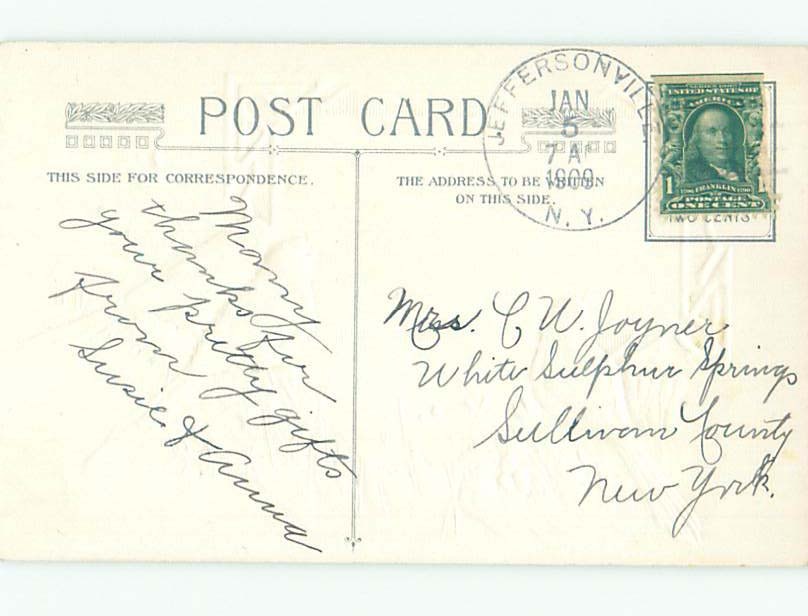 POST CARD
THIS SIDE FOR CORRESPONDENCE.
THE ADDRESS TO BE WRITTEN
ON THIS SIDE.
JEFFERSONVILLE,
JAN
5
7 A
1909
N. Y.
SERIES 1902
UNITED STATES OF
AMERICA
1
1706 FRANKLIN 1790
1
POSTAGE
ONE CENT
TWO CENTS
Many
thanks for
your pretty gifts
From
Susie & Anna
Mrs. C W. Joyner
White Sulphur Springs
Sullivan County
New York.